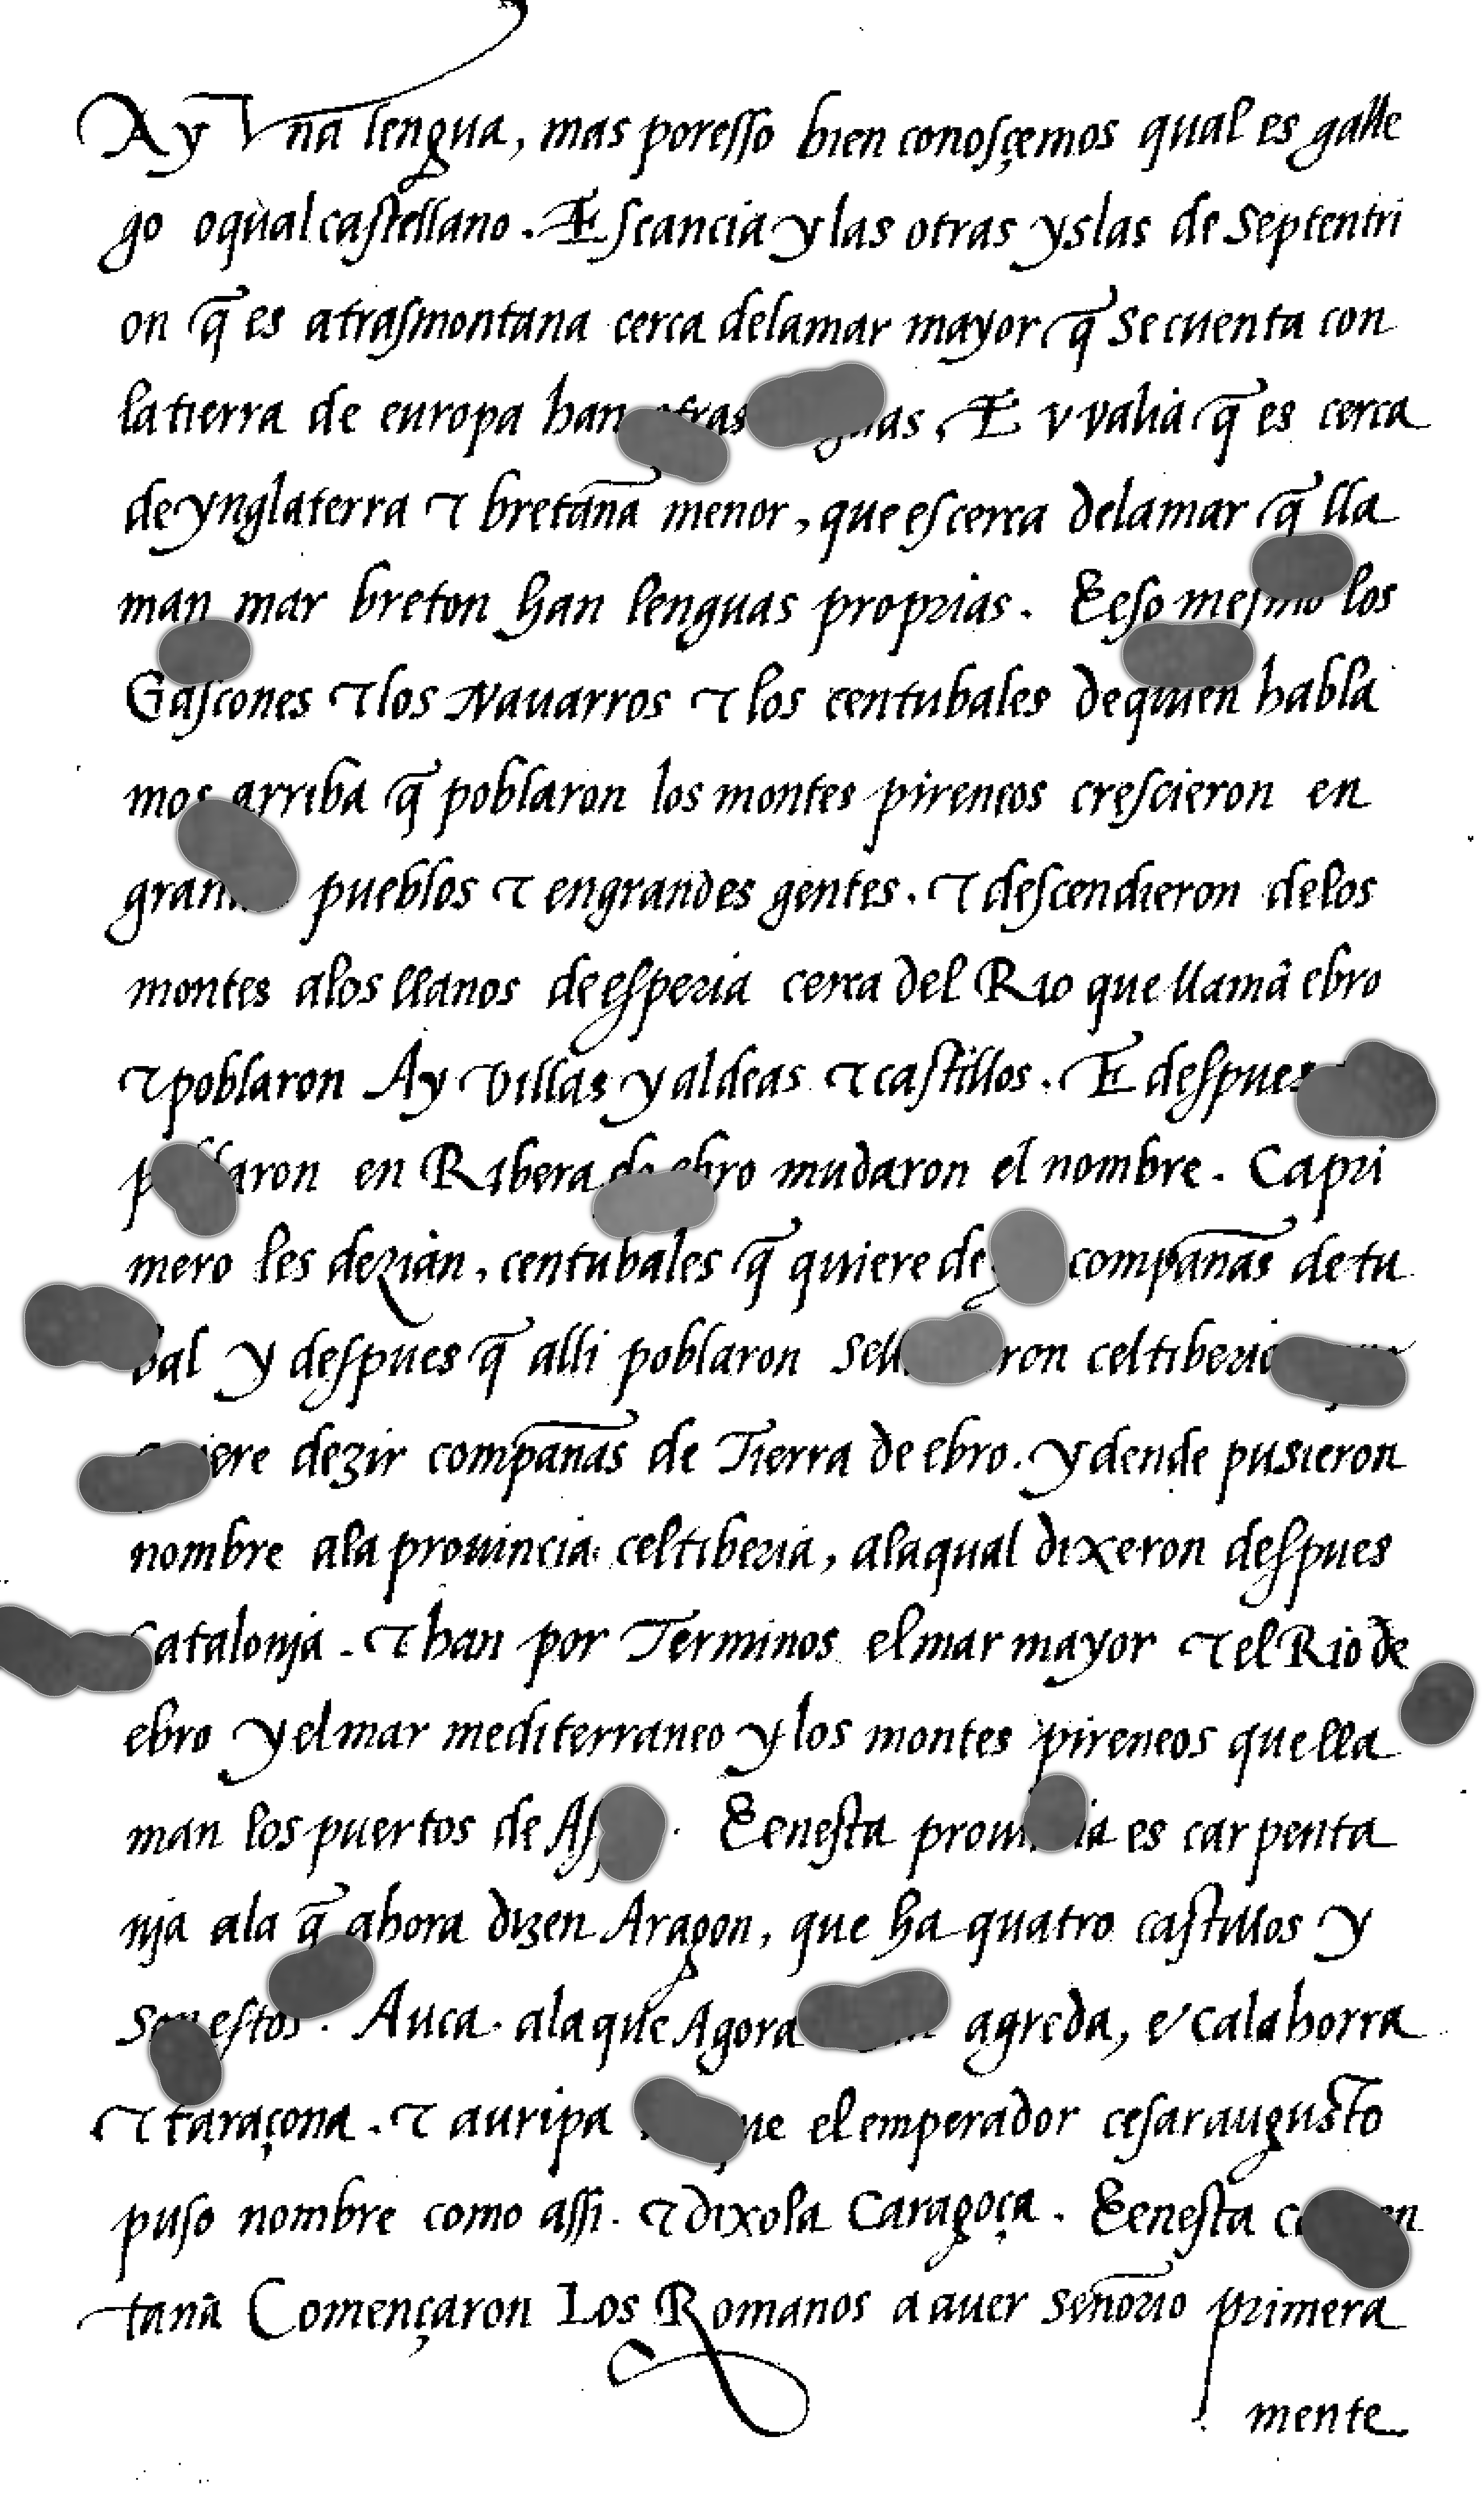 Ay Vna lengua, mas poresso bien conosçemos qual es galle
go oqual castellano. E scancia y las otras yslas de septentri
on q̃ es atrasmontana cerca delamar mayor q̃ se cuenta con
la tierra de europa han otras E vvalia q̃ es cerca
de ynglaterra ⁊ bretãna menor, que es cerca delamar q̃ lla
man mar breton han lenguas proprias. E eso mesmo los
Gascones ⁊ los Nauarros ⁊ los centubales de quien habla
mos arriba q̃ poblaron los montes pireneos crescieron en
pueblos ⁊ en grandes gentes. ⁊ descendieron delos
montes alos llanos de esperia cerca del Rio que llamã ebro
⁊ poblaron Ay villas y aldeas ⁊ castillos. E despues
en Ribera de ebro mudaron el nombre. Ca pri
mero les dezian, centubales q̃ quiere compãnas de tu
bal y despues q̃ alli poblaron celtiberios
dezir compãnas de Tierra de ebro. y dende pusieron
nombre ala prouincia celtiberia, ala qual dixeron despues
Catalonja. ⁊ han por Terminos el mar mayor ⁊ el Rio de
ebro y el mar mediterraneo y los montes pireneos que lla
man los puertos de E enesta es carpenta
nja ala q̃ ahora dizen Aragon, que ha quatro castillos y
son estos. Auca. ala que Agora agreda, e calahorra
⁊ taraçona. ⁊ auripa el emperador cesar augusto
puso nombre como assi. ⁊ dixola Caragoça. E enesta
tanã Començaron Los Romanos a auer sẽnorio primera
mente